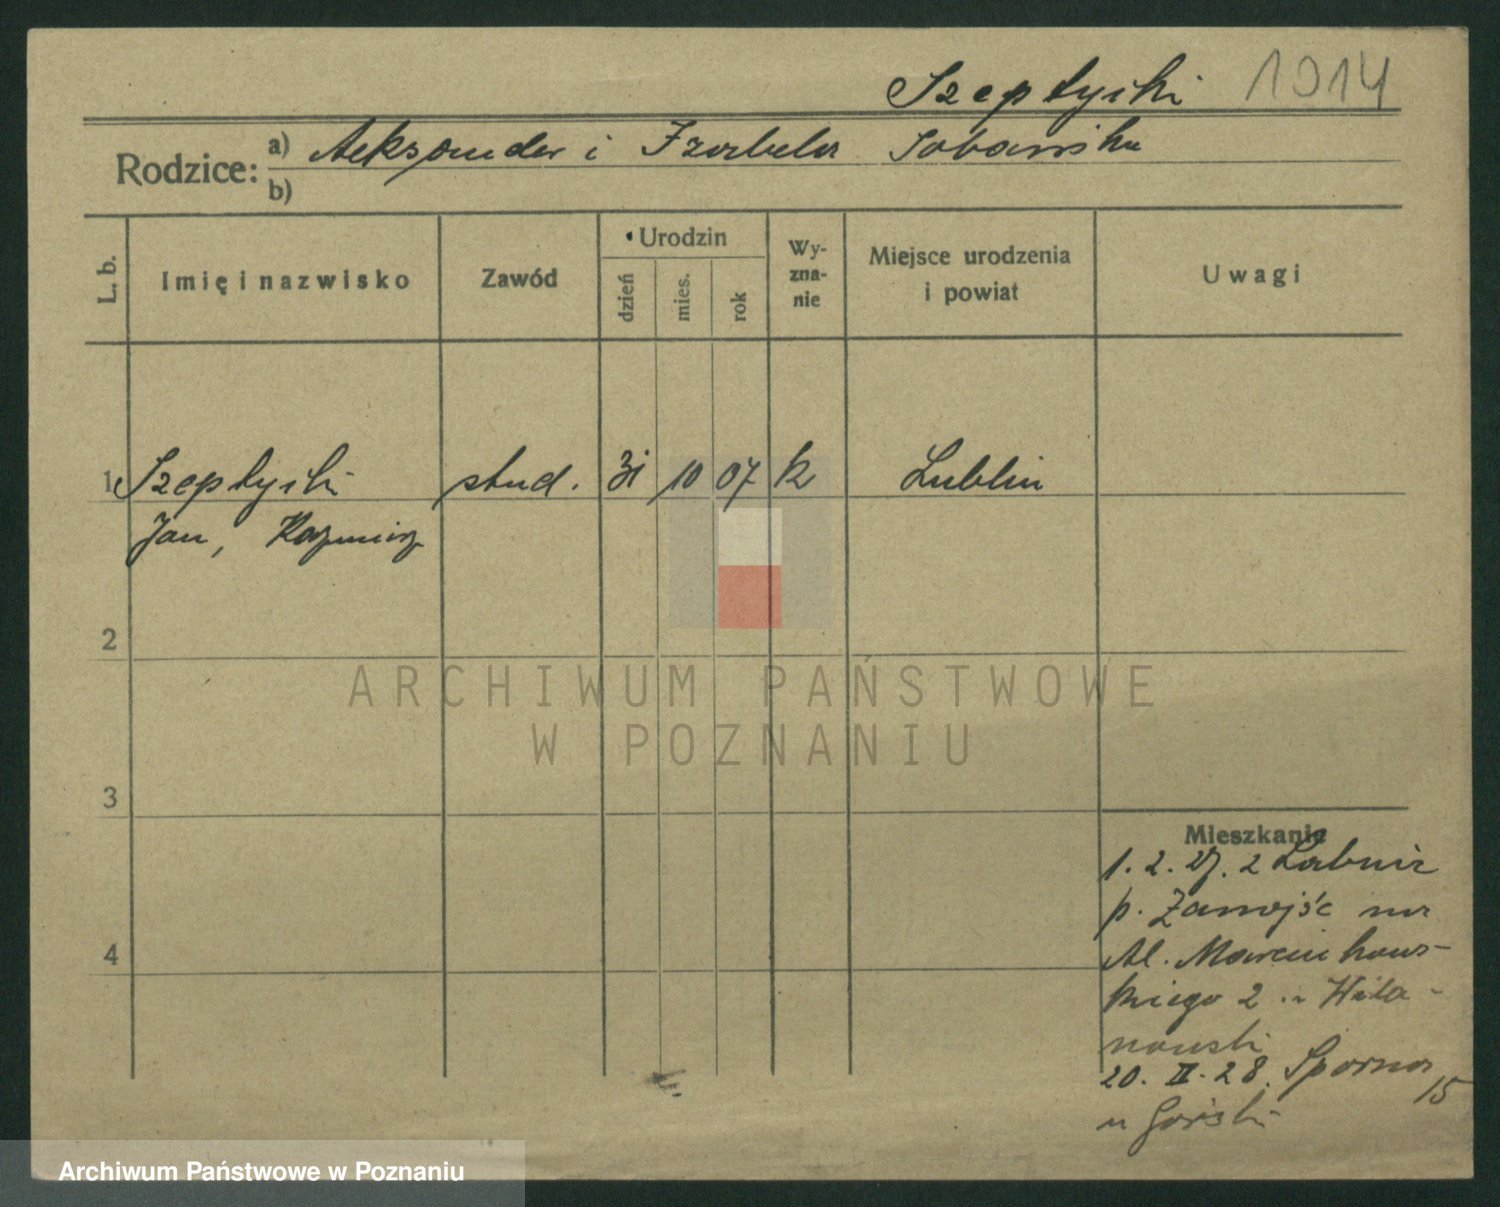 Szeptycki 1914
Rodzice: a) Aleksander i Izabela Sobańska
b)
L. b. Imię i nazwisko Zawód Urodzin dzień mies. rok Wyznanie Miejsce urodzenia i powiat Uwagi
1 Szeptycki stud. 31 10 07 k Lublin
Jan, Kazimierz
2
3
4
Mieszkanie
1. 2. 27. z Łabuń
p. Zamojść na
Al. Marcinkows-
kiego 2 u
20. II. 28. Sporna 15
u Górski
ARCHIWUM PAŃSTWOWE
W POZNANIU
Archiwum Państwowe w Poznaniu